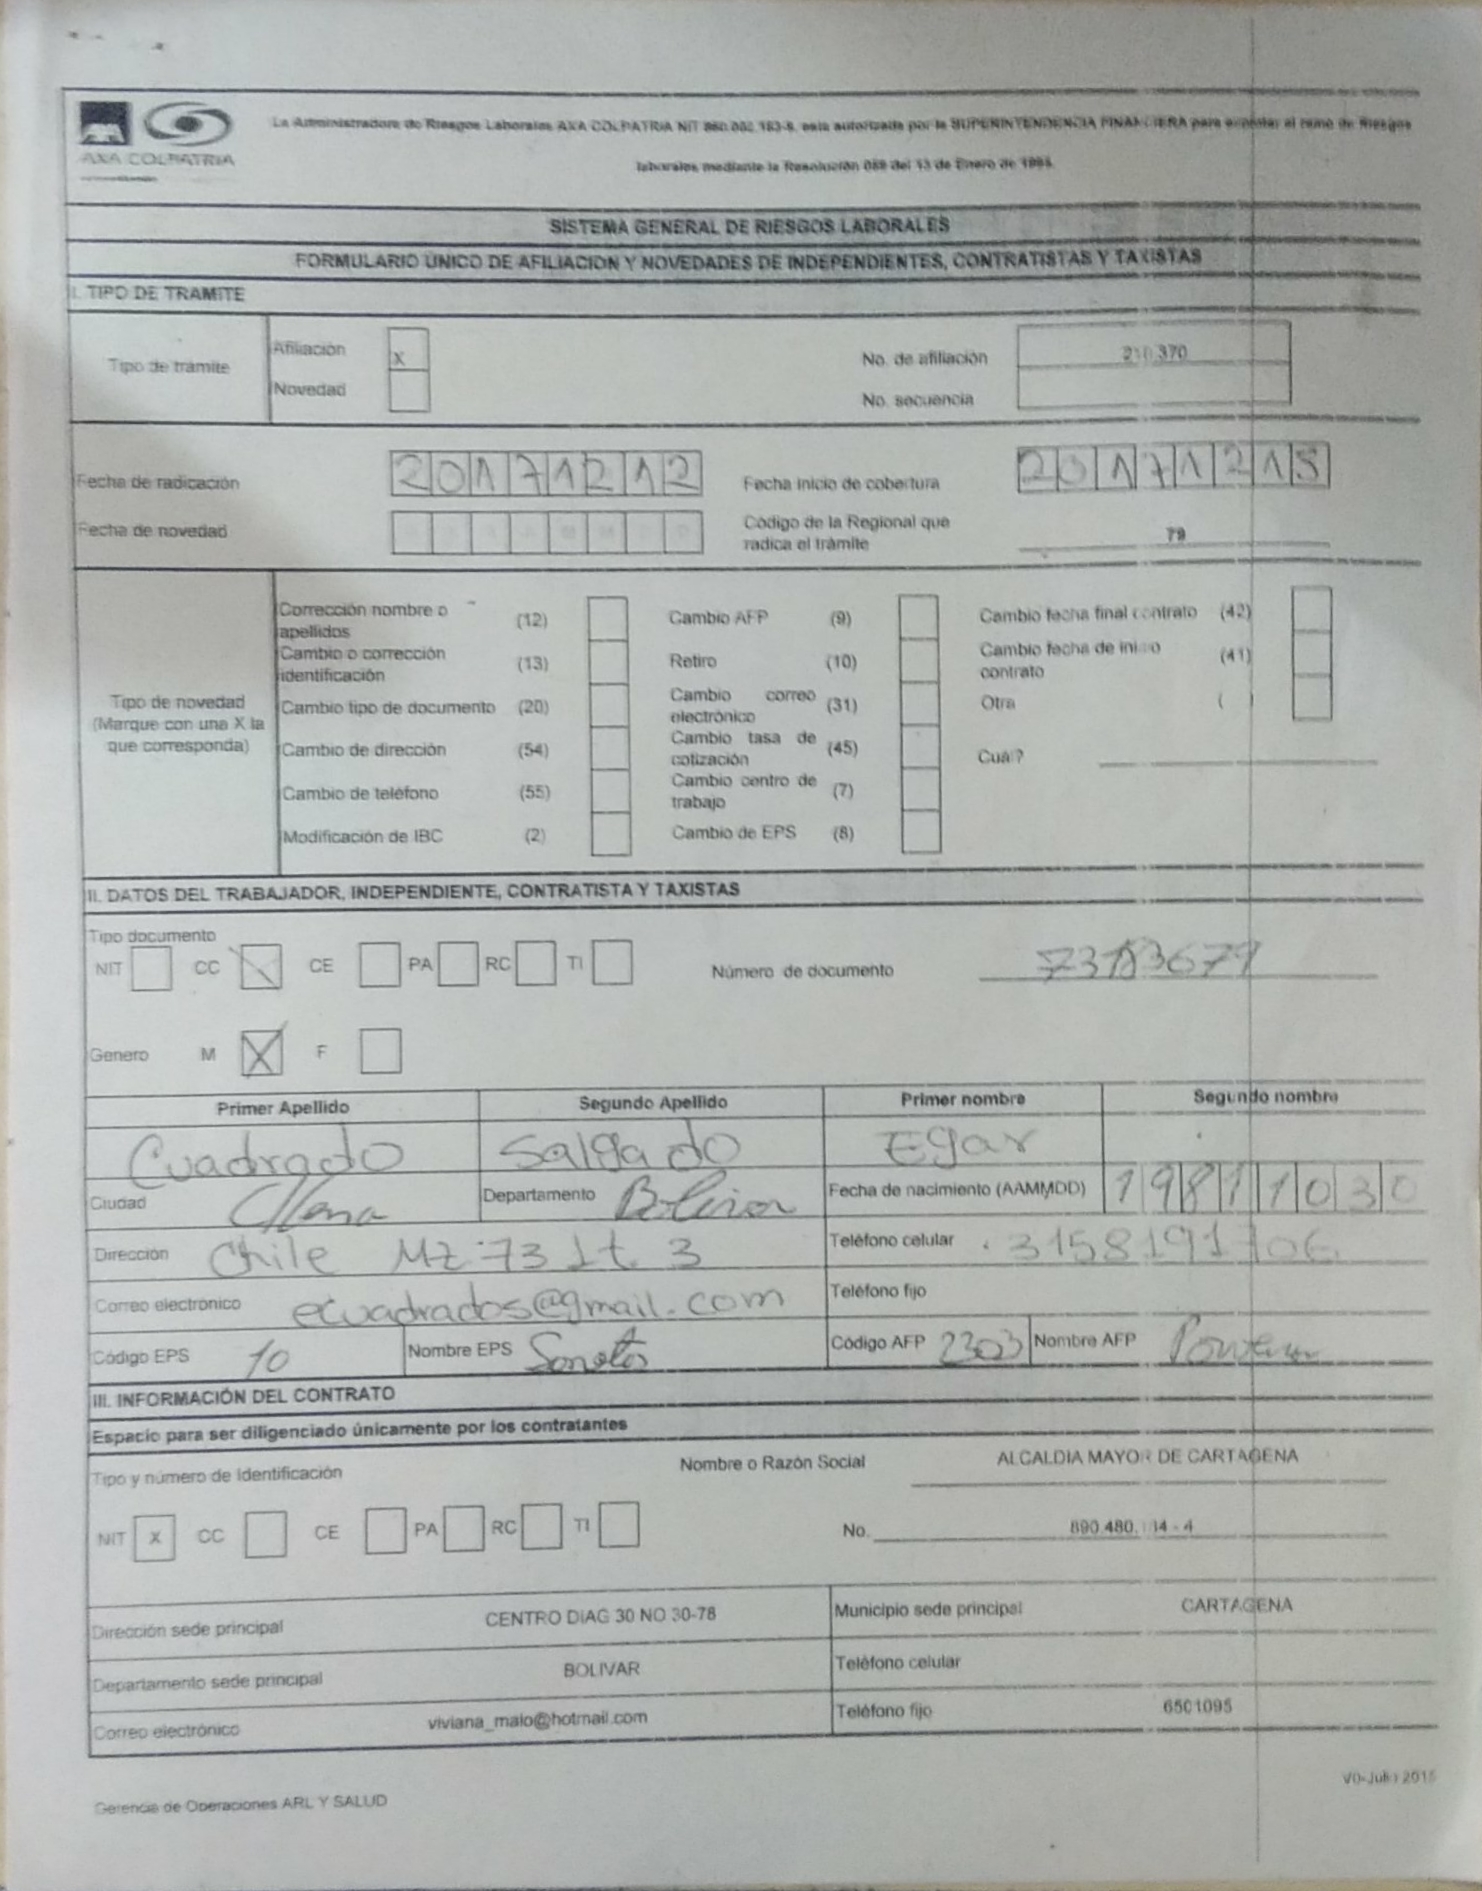 AXA COLPATRIA
La Administradora de Riesgos Laborales AXA COLPATRIA NIT 860.002.183-9, esta autorizada por la SUPERINTENDENCIA FINANCIERA para explotar el ramo de Riesgos
laborales mediante la Resolución 088 del 13 de Enero de 1995.
SISTEMA GENERAL DE RIESGOS LABORALES
FORMULARIO ÚNICO DE AFILIACION Y NOVEDADES DE INDEPENDIENTES, CONTRATISTAS Y TAXISTAS
I. TIPO DE TRAMITE
Tipo de trámite Afiliación X No. de afiliación 210.370
Novedad No. secuencia
Fecha de radicación 20171212 Fecha inicio de cobertura 20171215
Fecha de novedad Código de la Regional que radica el trámite 79
Corrección nombre o apellidos (12) Cambio AFP (9) Cambio fecha final contrato (42)
Cambio o corrección identificación (13) Retiro (10) Cambio fecha de inicio contrato (41)
Tipo de novedad (Marque con una X la que corresponda) Cambio tipo de documento (20) Cambio correo electrónico (31) Otra ( )
Cambio de dirección (54) Cambio tasa de cotización (45) Cuál?
Cambio de teléfono (55) Cambio centro de trabajo (7)
Modificación de IBC (2) Cambio de EPS (8)
II. DATOS DEL TRABAJADOR, INDEPENDIENTE, CONTRATISTA Y TAXISTAS
Tipo documento
NIT CC CE PA RC TI Número de documento 73183679
Genero M X F
Primer Apellido Segundo Apellido Primer nombre Segundo nombre
Cuadrado Salgado Egar
Ciudad Departamento Bolivar Fecha de nacimiento (AAMMDD) 19811030
Dirección Chile Mz 73 Lt. 3 Teléfono celular 3158191706
Correo electrónico ecuadrados@gmail.com Teléfono fijo
Código EPS 10 Nombre EPS Código AFP 2303 Nombre AFP
III. INFORMACIÓN DEL CONTRATO
Espacio para ser diligenciado únicamente por los contratantes
Tipo y número de Identificación Nombre o Razón Social ALCALDIA MAYOR DE CARTAGENA
NIT X CC CE PA RC TI No. 890.480.184 - 4
Dirección sede principal CENTRO DIAG 30 NO 30-78 Municipio sede principal CARTAGENA
Departamento sede principal BOLIVAR Teléfono celular
Correo electrónico viviana_malo@hotmail.com Teléfono fijo 6501095
V0-Julio 2015
Gerencia de Operaciones ARL Y SALUD